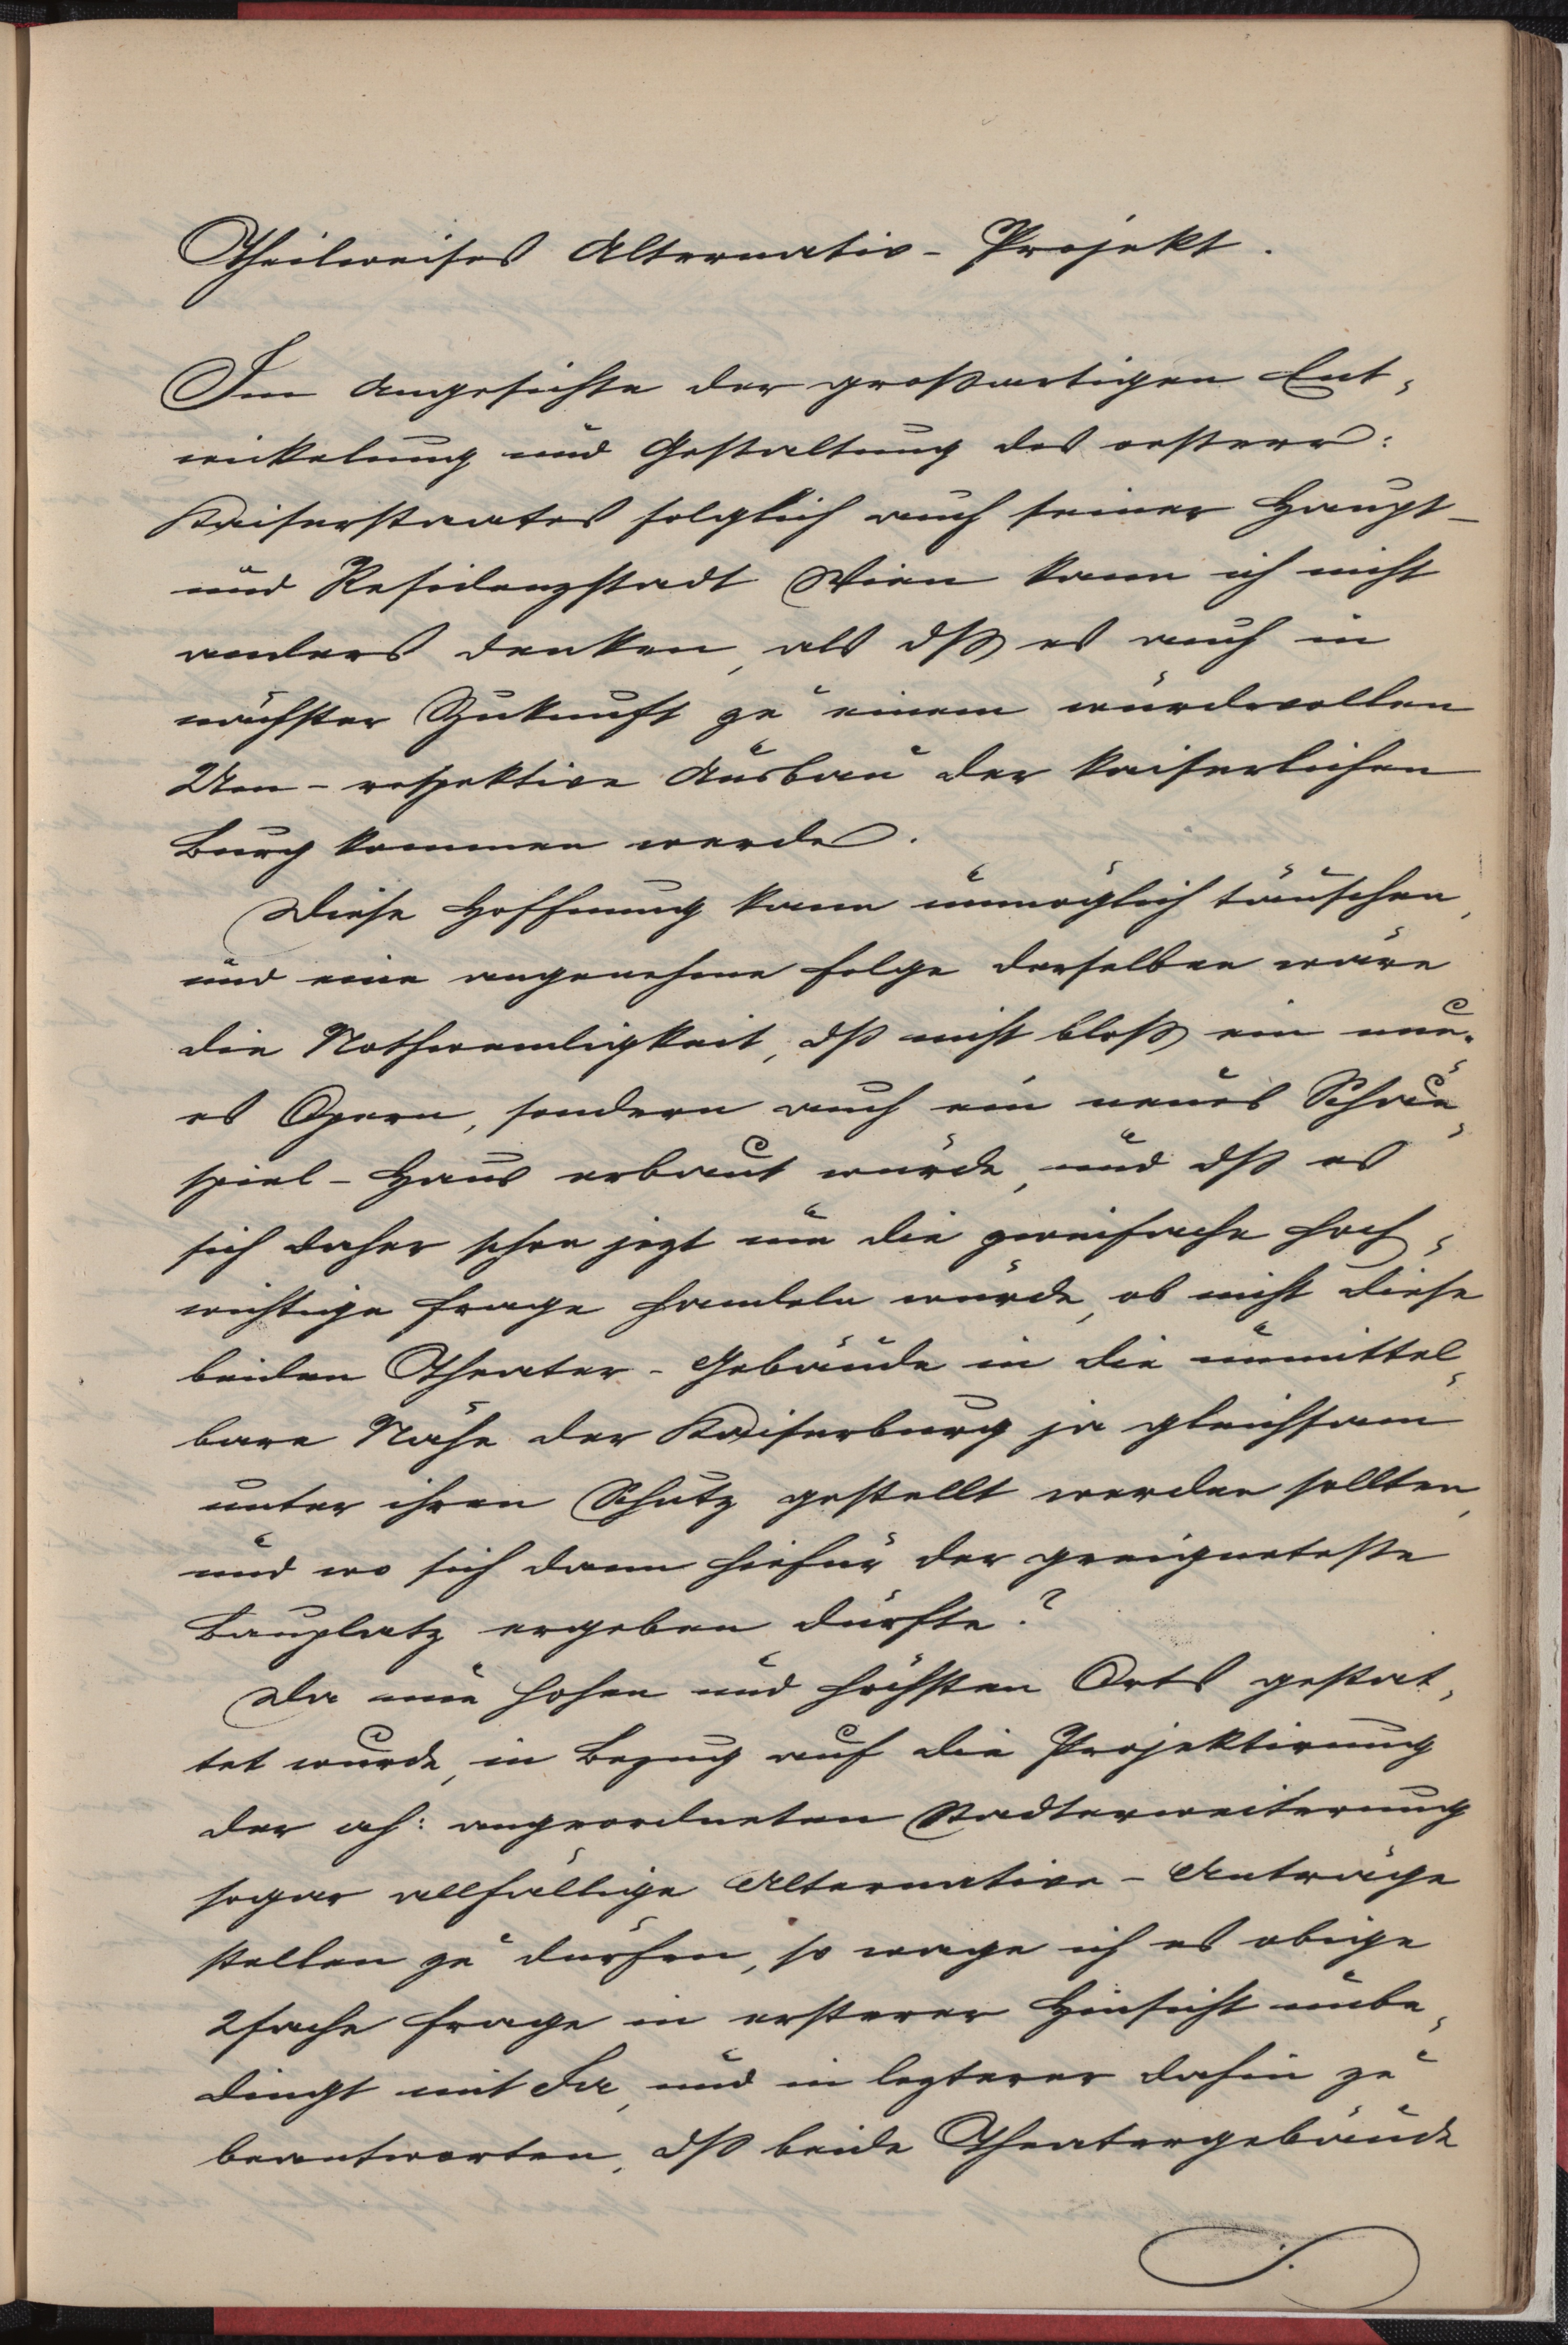 Theilweises Alternativ-Projekt.
Im Angesichte der großartigen Ent-
wickelung und Gestaltung des oesterr:
Kaiserstaates folglich auch seiner Haupt-
und Residenzstadt Wien kann ich nicht
anders denken, als dß es auch in
nächster Zukunft zu einem würdevollen
Um- respektive Ausbau der kaiserlichen
Burg kommen werde.
Diese Hoffnung kann unmöglich täuschen,
und eine angenehme Folge derselben wäre
die Nothwendigkeit, dß nicht bloß ein neu-
es Opern, sondern auch ein neues Schau-
spiel-Haus erbaut würde, und dß es
sich daher schon jezt um die zweifache hoch-
wichtige Frage handeln würde, ob nicht diese
beiden Theater-Gebäude in die unmittel-
bare Nähe der Kaiserburg ja gleichsam
unter ihren Schutz gestellt werden sollten,
und wo sich dann hiefür der geeigneteste
Bauplatz ergeben dürfte?
Da nun hohen und höchsten Orts gestat-
tet wurde, in Bezug auf die Projektirung
der ah: angeordneten Stadterweiterung
sogar allfällige Alternative-Anträge
stellen zu dürfen, so wage ich es obige
2fache Frage in ersterer Hinsicht unbe-
dingt mit Ja, und in lezterer dahin zu
beantworten, dß beide Theatergebäude